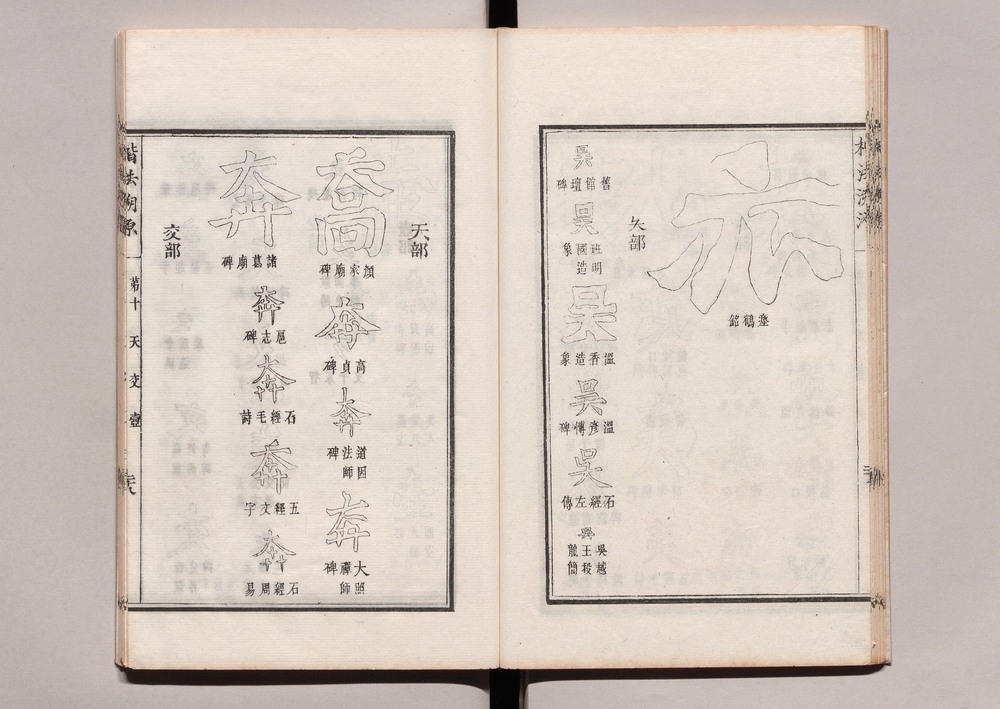 亦
瘞鶴銘
夨部
吳
舊館壇碑
吳
班明國造象
吳
溫香造象
吳
溫彥博碑
吳
石經左傳
吳
吳越王投龍簡
夭部
喬
顏家廟碑
奔
高貞碑
奔
道因法師碑
奔
大照禪師碑
奔
諸葛廟碑
奔
志碑
奔
石經毛詩
奔
五經文字
奔
石經周易
交部
楷法溯原
第十
夭
交
壹